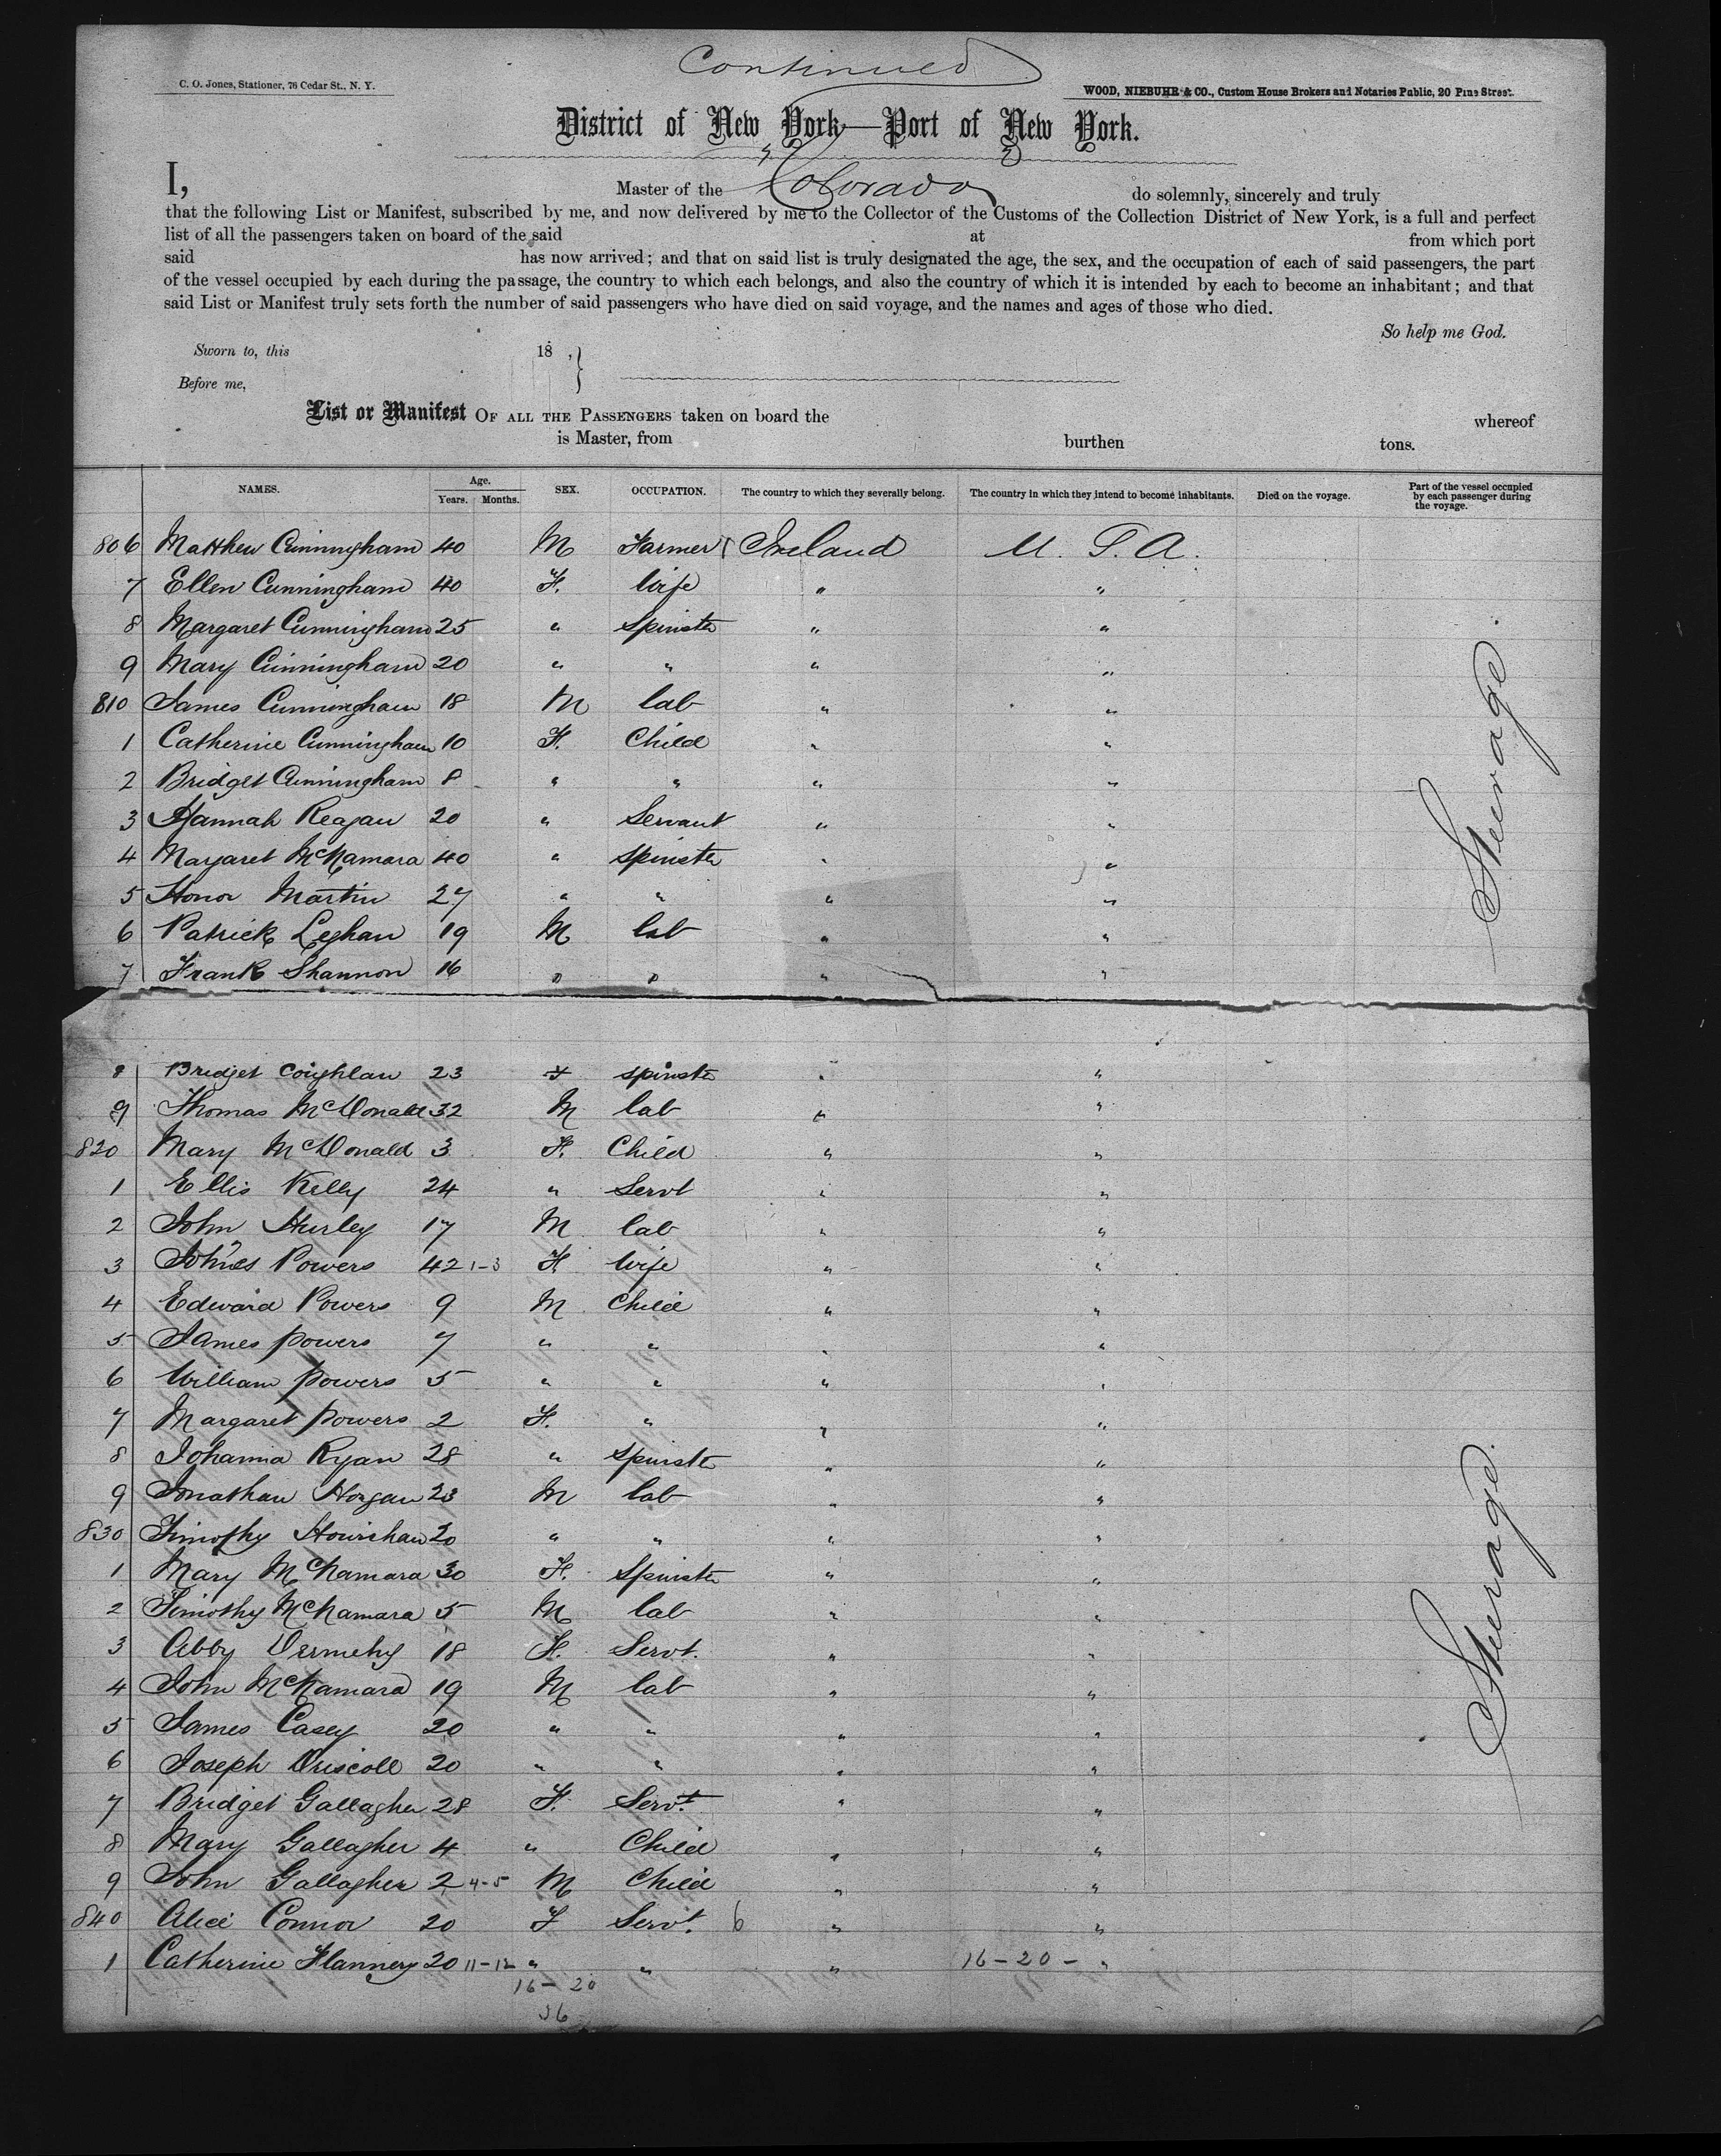 Continued
C. O. Jones, Stationer, 76 Cedar St., N. Y.
WOOD, NIEBUHR & CO., Custom House Brokers and Notaries Public, 20 Pine Street.
District of New York—Port of New York.
I, Master of the Colorado do solemnly, sincerely and truly
that the following List or Manifest, subscribed by me, and now delivered by me to the Collector of the Customs of the Collection District of New York, is a full and perfect
list of all the passengers taken on board of the said at from which port
said has now arrived; and that on said list is truly designated the age, the sex, and the occupation of each of said passengers, the part
of the vessel occupied by each during the passage, the country to which each belongs, and also the country of which it is intended by each to become an inhabitant; and that
said List or Manifest truly sets forth the number of said passengers who have died on said voyage, and the names and ages of those who died.
So help me God.
Sworn to, this 18 ,
Before me,
List or Manifest OF ALL THE PASSENGERS taken on board the whereof
is Master, from burthen tons.
NAMES. Age. Years. Months. SEX. OCCUPATION. The country to which they severally belong. The country in which they intend to become inhabitants. Died on the voyage. Part of the vessel occupied by each passenger during the voyage.
806 Matthew Cunningham 40 M Farmer Ireland U. S. A.
7 Ellen Cunningham 40 F. Wife " "
8 Margaret Cunningham 25 " Spinster " "
9 Mary Cunningham 20 " " " "
810 James Cunningham 18 M lab " "
1 Catherine Cunningham 10 F. Child " "
2 Bridget Cunningham 8 " " " "
3 Hannah Reagan 20 " Servant " "
4 Margaret McNamara 40 " Spinster " "
5 Honor Martin 27 " " " "
6 Patrick Leghan 19 M lab " "
7 Frank Shannon 16 " " " "
Steerage.
8 Bridget Coughlan 23 F spinster " "
9 Thomas McDonald 32 M lab " "
820 Mary McDonald 3 F. Child " "
1 Ellis Kelly 24 " Servt " "
2 John Hurley 17 M lab " "
3 Powers 42 1-3 F Wife " "
4 Edward Powers 9 M Child " "
5 James Powers 7 " " " "
6 William Powers 5 " " " "
7 Margaret Powers 2 F. " " "
8 Johanna Ryan 28 " Spinster " "
9 Jonathan Horgan 23 M lab " "
830 Timothy Hourihan 20 " " " "
1 Mary McNamara 30 F. Spinster " "
2 Timothy McNamara 5 M lab " "
3 Abby 18 F. Servt. " "
4 John McNamara 19 M lab " "
5 James Casey 20 " " " "
6 Joseph Driscoll 20 " " " "
7 Bridget Gallagher 28 F. Servt. " "
8 Mary Gallagher 4 " Child " "
9 John Gallagher 2 4-5 M Child " "
840 Alice Connor 20 F Servt. 6 " "
1 Catherine Flannery 20 11-12 " " " 16-20- "
16-20
36
Steerage.